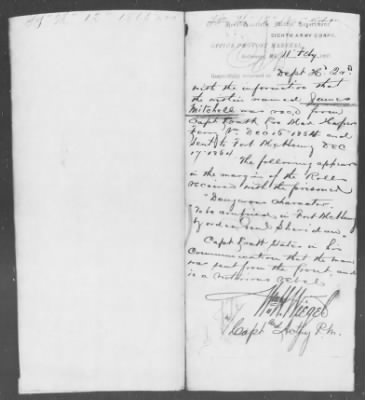 EIGHTH ARMY CORPS,
OFFICE PROVOST MARSHAL,
Respectfully returned to
Dept Hd Qrs
with the information that
the within named James
Mitchell was recd from
Capt Pratt Pro Mar Harpers
Ferry Va Dec 15" 1864 and
sent to Fort McHenry Dec
17" 1864
The following appears
in the margin of the Rolls
received with the prisoner
"Dangerous character.
To be confined in Fort McHenry
by order Genl Sheridan"
Capt Pratt States in his
Communication that the man
was sent from the front, and
is a notorious rebel
Wm H Wiegel
Capt